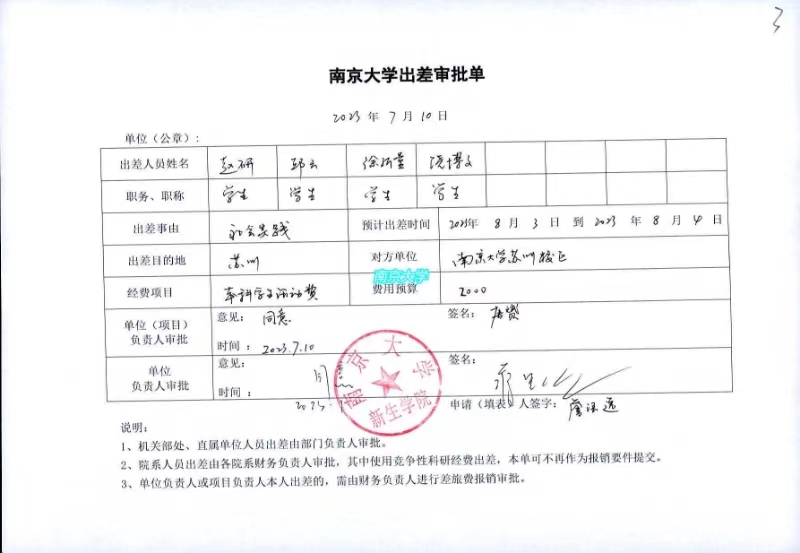 3
南京大学出差审批单
2023 年 7 月 10 日
单位（公章）：
出差人员姓名 赵研 邱云
职务、职称 学生 学生 学生 学生
出差事由 社会实践 预计出差时间 2023年 8 月 3 日 到 2023 年 8 月 4 日
出差目的地 苏州 对方单位 南京大学苏州校区
南京大学
经费项目 本科学生活动费 费用预算 2000
单位（项目）负责人审批 意见： 同意 签名：
时间：2023.7.10
单位负责人审批 意见： 同意 签名：
时间： 2023.
南京大学
新生学院
申请（填表）人签字：
说明：
1、机关部处、直属单位人员出差由部门负责人审批。
2、院系人员出差由各院系财务负责人审批，其中使用竞争性科研经费出差，本单可不再作为报销要件提交。
3、单位负责人或项目负责人本人出差的，需由财务负责人进行差旅费报销审批。